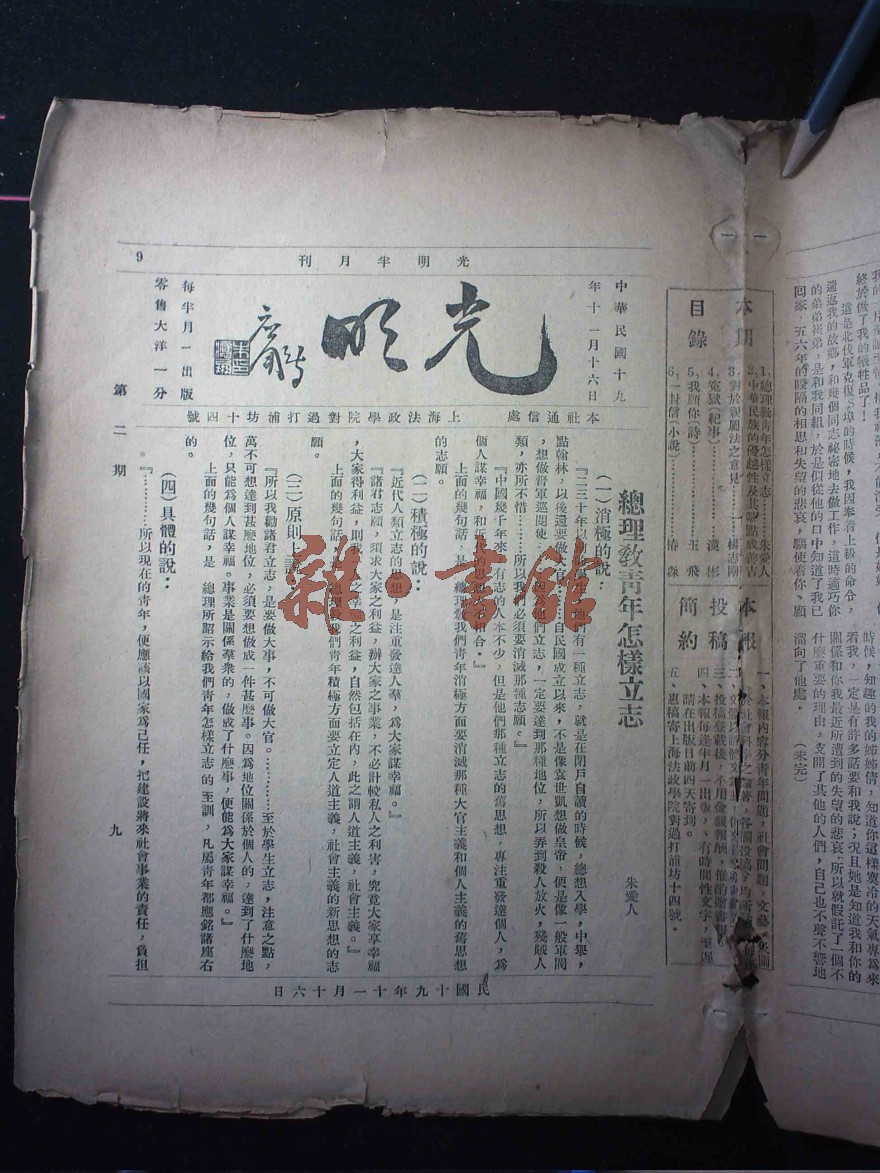 我的弟弟視弟,是和我同組,於是似從他的口中知道了我已
這是北伐軍克復S埠的時候,我因奉着上級的命令,
遄返我的故鄉,和幾個同志祕密地去做工作,這時適巧你
回家,五六年的睽隔的相思和失望的悲哀,驅使着你、願
終於做了我的犧牲品了!
時候,知趣的我的姊姊倩,知道你這樣寒冷的天氣專爲來
看我,一定是有許多話要和我說;況且她是知道我和你的
關係和你我最近所遭到的失望的悲哀;所以就假託了一個不
什麼重要的理由,支開了其他的人們,自己也不聲不響地
溜向了他處。 (未完)
一
一
本期目錄
1,總理敎靑年怎樣立志……朱愛人
2,中華民族的優越性及其弱點成善吉
3,對於親屬法之意見……楊志剛
4,冤獄(紀事)……漢彬
5,我願你(詩)……玉飛
6,一封信(小說)……椿森
本報投稿簡約
一、本報內容分靑年問題,社會問題,文藝,
三、投稿登載後,不用金錢報酬,
四、本報每逢半月一出版,有時間性文字,
請在出版日前四天寄到。
五、惠稿寄上海法政學院對過打浦坊十四號。
光明半月刊
9
中華民國十九年十一月十六日
光明
每半月一出版
零售大洋一分
本社通信處 上海法政學院對過打浦坊十四號
總理敎靑年怎樣立志
朱愛人
(一)消極的說:
『二三十年以前的學生,他們有一種立志,就是在閉戶自讀的時候,總想入學,中舉,
點翰林,以後還要做大官……自民國成立以來,不是像袁世凱想做皇帝,便是像一般軍閥
,想做督軍巡閱使……因爲他們立志,一定要達到那種地位,所以弄到殺人放火,殘賊人
類,亦所不惜……所以我們必須要消滅那種志願。』
『中國幾千年來,有志的人本不少,但是他們那種立志的舊思想,專注重發達個人,爲
個人謀幸福,和近代的思想大不相合。』
上面的幾句話,是 總理敎我們靑年消極方面要消滅那種大官主義和個人主義的舊思想
的志願。
(二)積極的說:
『近代人類立志的思想,是注重發達人羣,爲大家謀幸福。』
『諸君志願,須求大家之利益,辦大家之事業,不必計較私人之利害,究竟大家享幸福
,大家得利益,則我一人之幸福之利益,自然包括在內,此之謂人道主義,社會主義。』
上面的幾句話,是 總理敎我們靑年積極方面要立定人道主義,社會主義的新思想的志
願。
(三)原則上說:
『所以我勸諸君立志,是要做大事,不可做大官。…………至於學生立志,注意之點,
萬不可想達到甚麽地位,必須要想做成一件甚麽事。因爲地位關係於個人的,達到了什麽地
位,只能爲個人謀幸福。事業是關係羣衆的,做成了什麽事,便能爲大家謀幸福。』
上面的幾句話,是 總理所詔示給我們靑年怎樣立志的至訓,凡屬靑年都應銘諸座右
的。
(四)具體的說:
『…………所以現在的靑年,便應該以國家爲己任,把建設將來社會事業的責任,負担
第二期
九
民國十九年十一月十六日
雜·書館